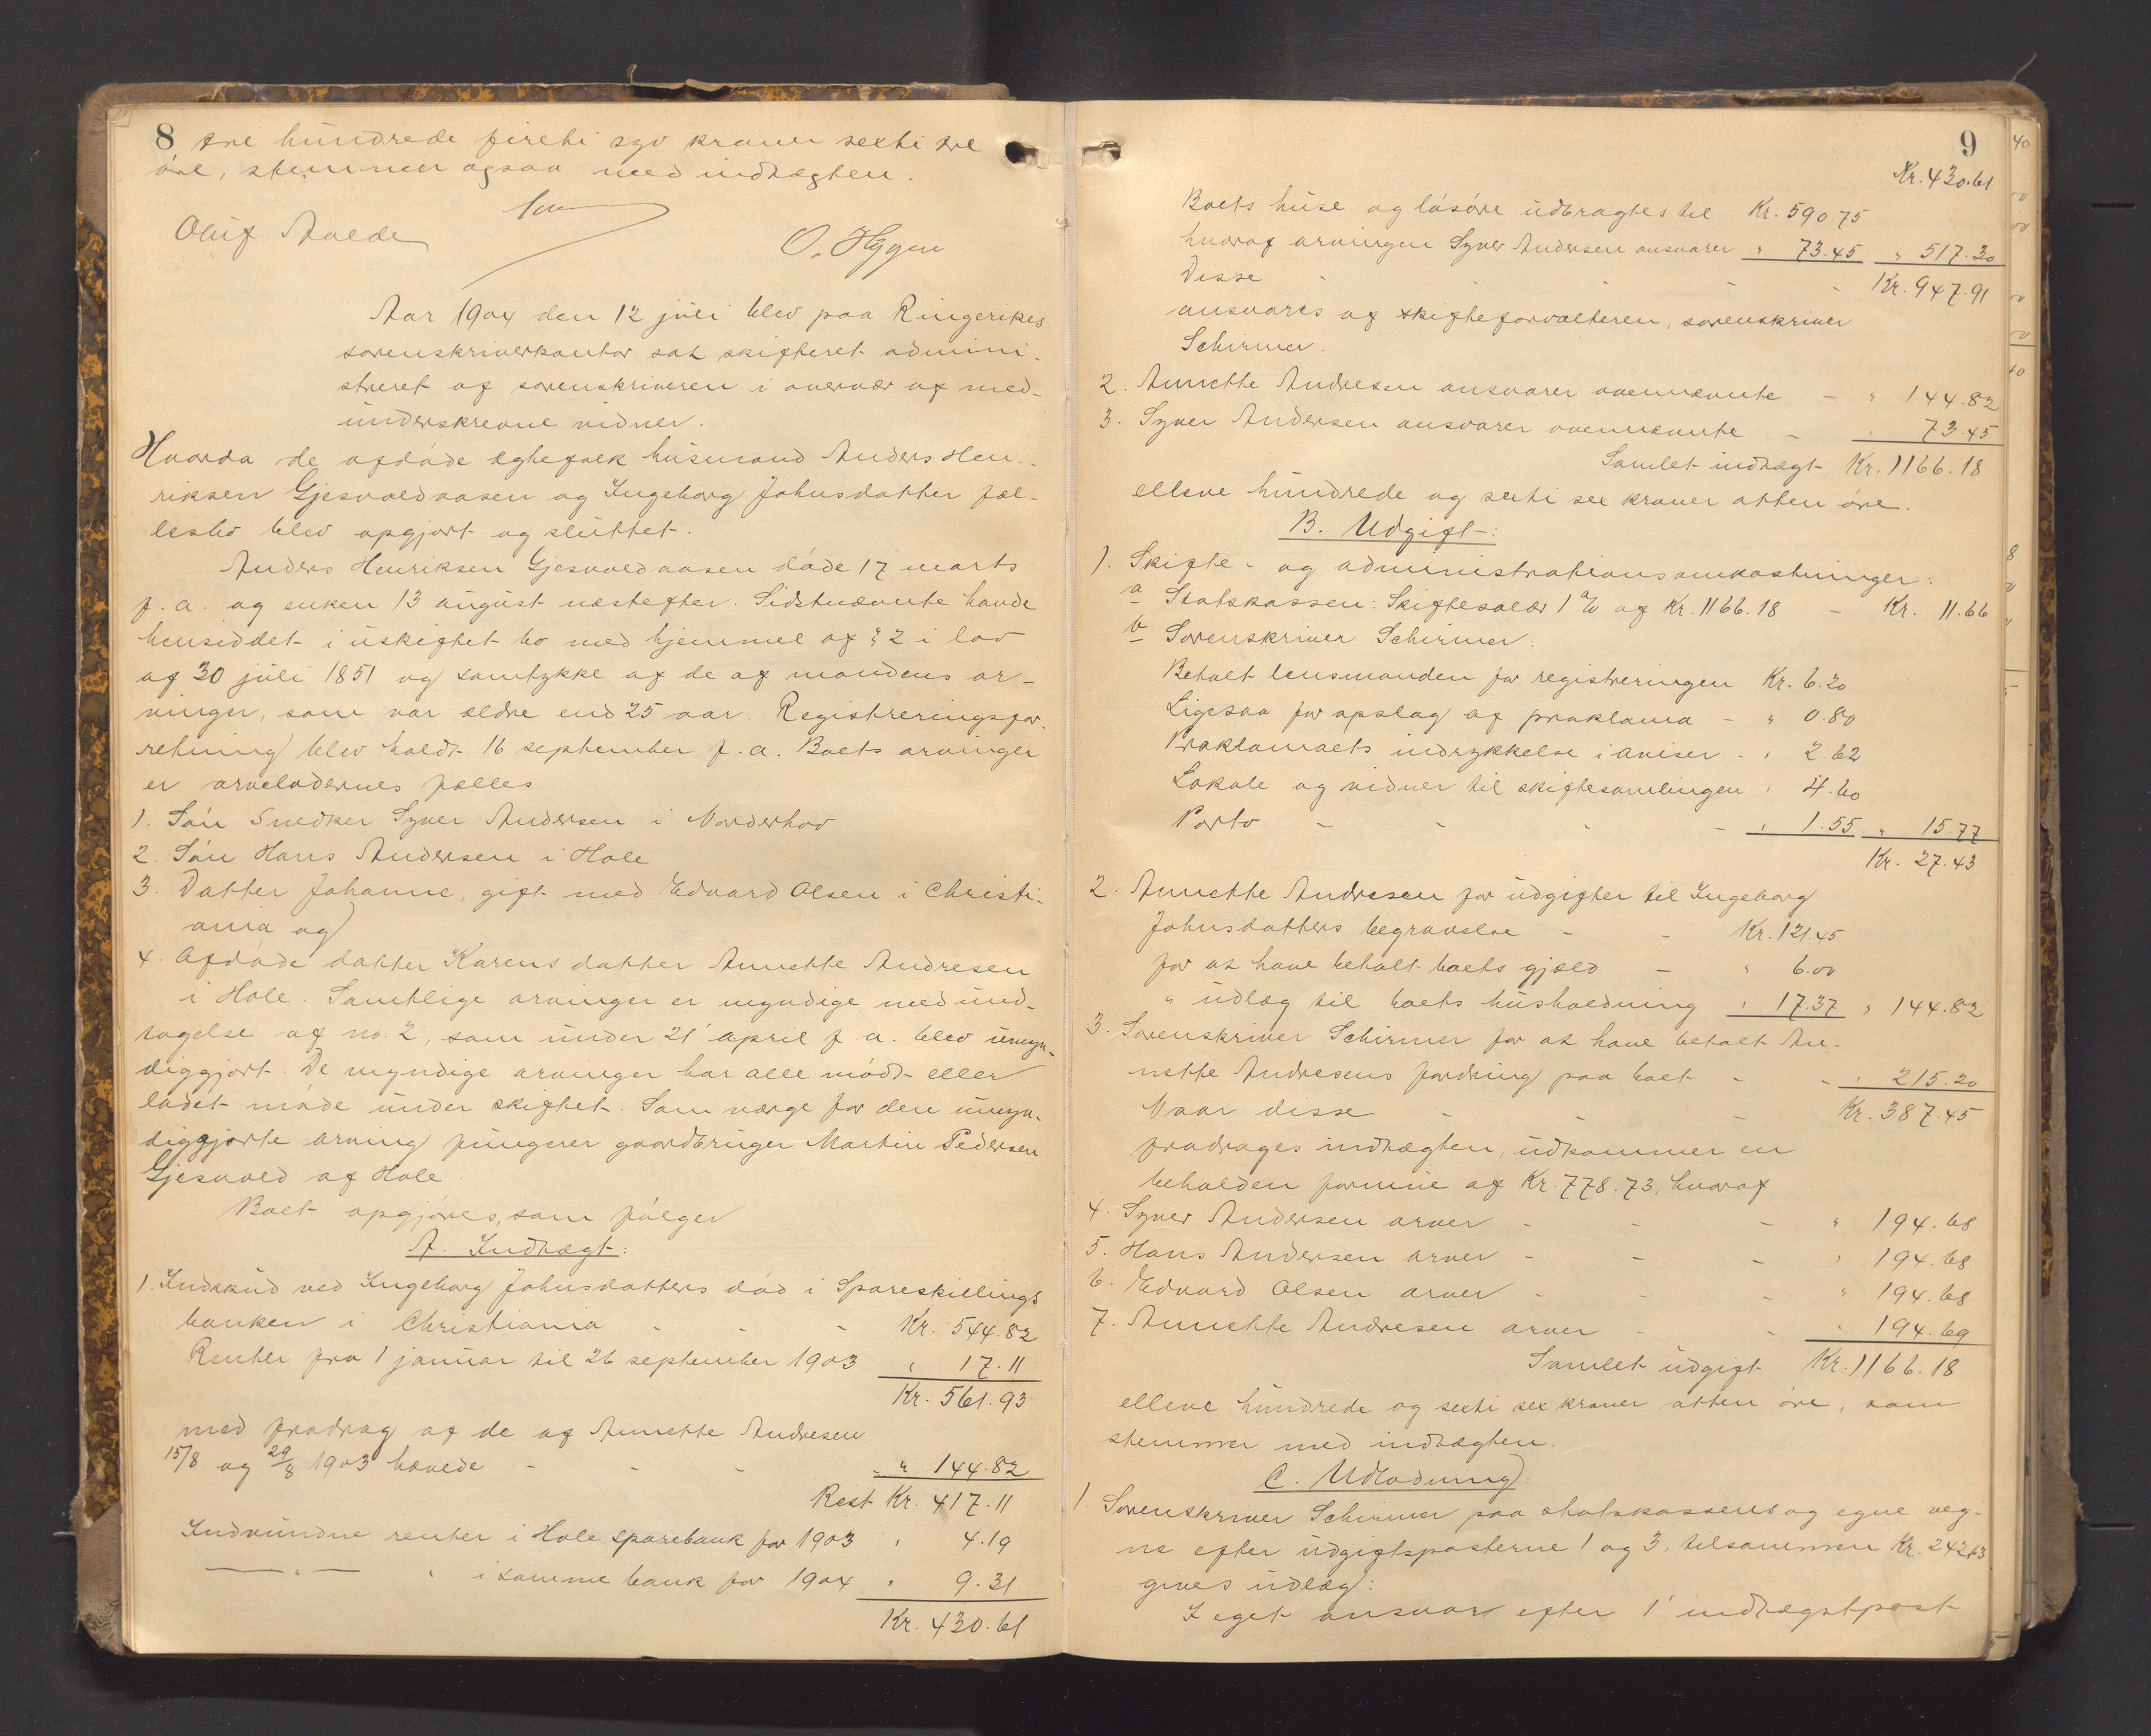 8 tre hundrede firethi syv kroner sexti tre
øre, stemmer ogsaa med indtægten.
Oluf Aalde
O. Hygen
Aar 1904 den 12 juli blev paa Ringerikes
sorenskriverkontor sat skifteret admini-
streret af sorenskriveren i overvær af med-
underskrevne vidner.
Hvorda de afdøde egtefolk husmand Anders Hen-
riksen Gjesvoldaasen og Ingeborg Johnsdatter fæl-
lesbo blev opgjort og sluttet.
Anders Henriksen Gjesvoldaasen døde 17 marts
f. a. og enken 13 august næstefter. Sidstnævnte havde
hensiddet i uskiftet bo med hjemmel af § 2 i lov
af 30 juli 1851 og samtykke af de af mandens ar-
vinger, som var ældre end 25 aar. Registreringsfor-
retning blev holdt 16 september f. a. Boets arvinger
er arveladernes fælles
1. Søn Snedker Syver Andersen i Norderhov
2. Søn Hans Andersen i Hole
3. Datter Johanne, gift med Edvard Olsen i Christi-
ania og
4. Afdøde datter Karens datter Annette Andresen
i Hole. Samtlige arvinger er myndige med und-
tagelse af no. 2, som under 21' april f. a. blev umyn-
diggjort. De myndige arvinger har alle mødt eller
ladet møde under skiftet. Som værge for den umyn-
diggjorte arving fungerer gaardbruger Martin Pedersen
Gjesvold af Hole.
Boet opgjøres, som følger
A. Indtægt:
1. Indskud ved Ingeborg Johnsdatters død i Spareskillings
banken i Christiania - - - Kr. 544.82
Renter fra 1 januar til 26 september 1903 " 17.11
Kr. 561.93
med fradrag af de af Annette Andresen
15/8 og 29/8 1903 hævede - - - " 144.82
Rest Kr. 417.11
Indvundne renter i Hole sparebank for 1903 " 4.19
— " — " i samme bank for 1904 " 9.31
Kr. 430.61
9
Kr. 430.61
Boets huse og løsøre udbragtes til Kr. 590.75
hvoraf arvingen Syver Andersen ansvarer " 73.45 " 517.30
Disse - - - - Kr. 947.91
ansvares af skifteforvalteren, sorenskriver
Schirmer.
2. Annette Andresen ansvarer ovennævnte - " 144.82
3. Syver Andersen ansvarer ovennævnte - " 73.45
Samlet indtægt Kr. 1166.18
elleve hundrede og sexti sex kroner atten øre.
B. Udgift:
1. Skifte- og administrationsomkostninger:
a Statskassen: Skiftesalær 1 % af Kr. 1166.18 - Kr. 11.66
b Sorenskriver Schirmer:
Betalt lensmanden for registreringen Kr. 6.20
Ligesaa for opslag af proklama - " 0.80
Proklamaets indrykkelse i aviser - " 2.62
Lokale og vidner til skiftesamlingen " 4.60
Porto - - - - " 1.55 " 15.77
Kr. 27.43
2. Annette Andresen for udgifter til Ingeborg
Johnsdatters begravelse - - Kr. 121.45
for at have betalt boets gjæld - " 6.00
" udlæg til boets husholdning " 17.37 " 144.82
3. Sorenskriver Schirmer for at have betalt An-
nette Andresens fordring paa boet - - " 215.20
Naar disse - - - Kr. 387.45
fradrages indtægten, udkommer en
beholden formue af Kr. 778.73, hvoraf
4. Syver Andersen arver - - - " 194.68
5. Hans Andersen arver - - - " 194.68
6. Edvard Olsen arver - - - " 194.68
7. Annette Andresen arver - - " 194.69
Samlet udgift Kr. 1166.18
elleve hundrede og sexti sex kroner atten øre, som
stemmer med indtægten.
C. Udlodning:
1. Sorenskriver Schirmer paa statskassens og egne veg-
ne efter udgiftsposterne 1 og 3, tilsammen Kr. 242.63
gives udlæg:
I eget ansvar efter 1' indtægtspost